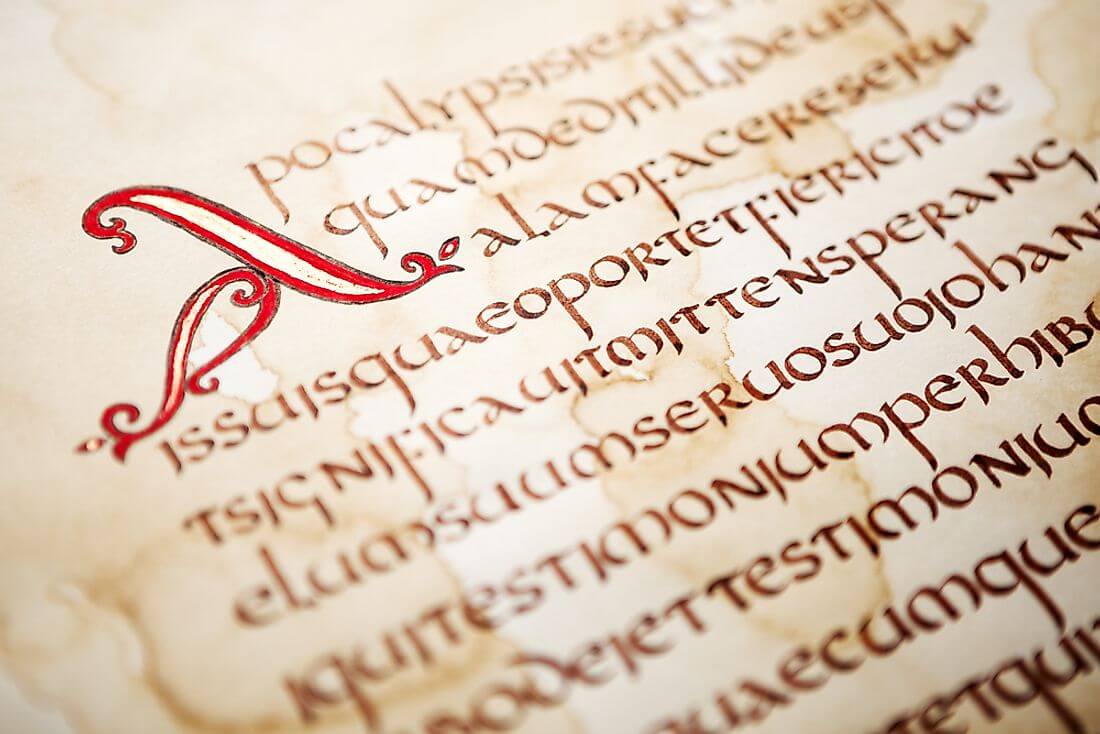 Apocalypsisiesuch
quamdeditillideusp
alamfacereseru
issuisquaeoportetfiericitoe
tsignificauitmittensperang
elumsuumseruosuoiohann
iquitestimoniumperhib
bodeiettestimoniu
uaecumque
etetqui